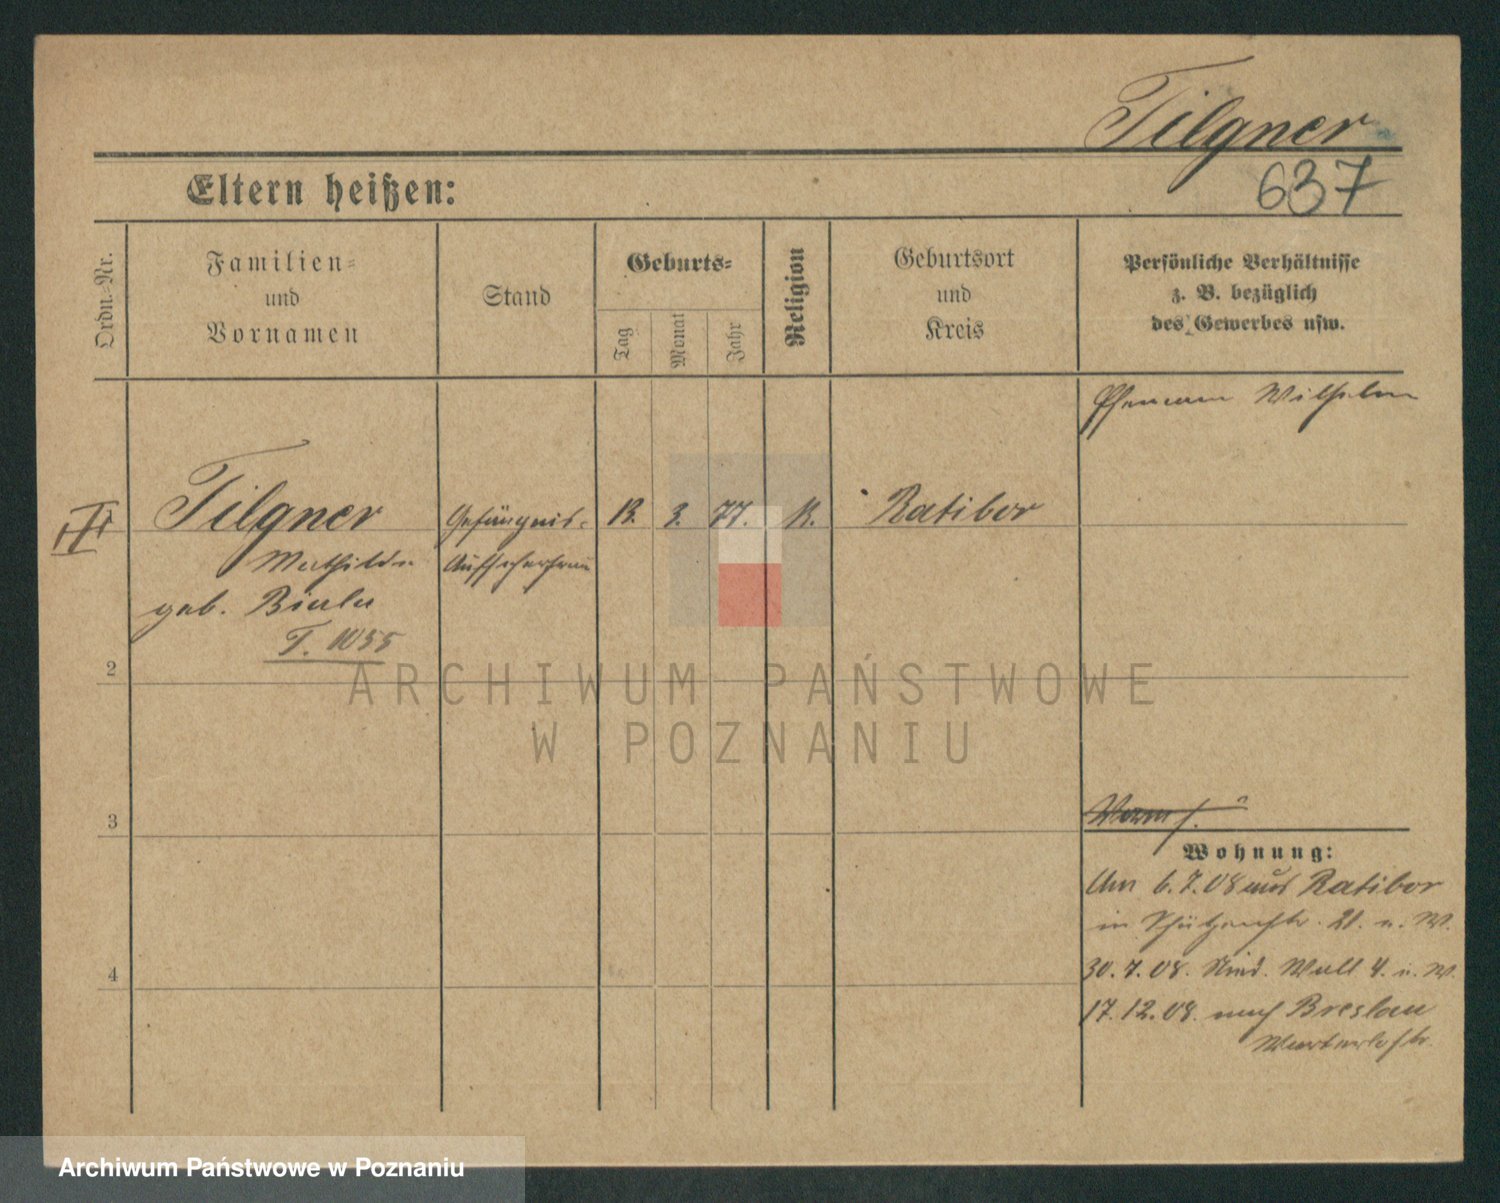 Tilgner
637
Eltern heißen:
Ordn.-Nr.
Familien-
und
Vornamen
Stand
Geburts-
Tag
Monat
Jahr
Religion
Geburtsort
und
Kreis
Persönliche Verhältnisse
z. B. bezüglich
des Gewerbes usw.
Wilhelm
Tilgner
Gefängnis-
13.
3.
77.
K.
Ratibor
Mathilde
Aufseherfrau
geb. Biala
T. 1055
2
ARCHIWUM PAŃSTWOWE
W POZNANIU
3
Wohnung:
Am 6.7.08 aus Ratibor
in Schützenstr. 21. u. W.
4
30.7.08. Wall 4. u. W.
17.12.08. nach Breslau
Archiwum Państwowe w Poznaniu